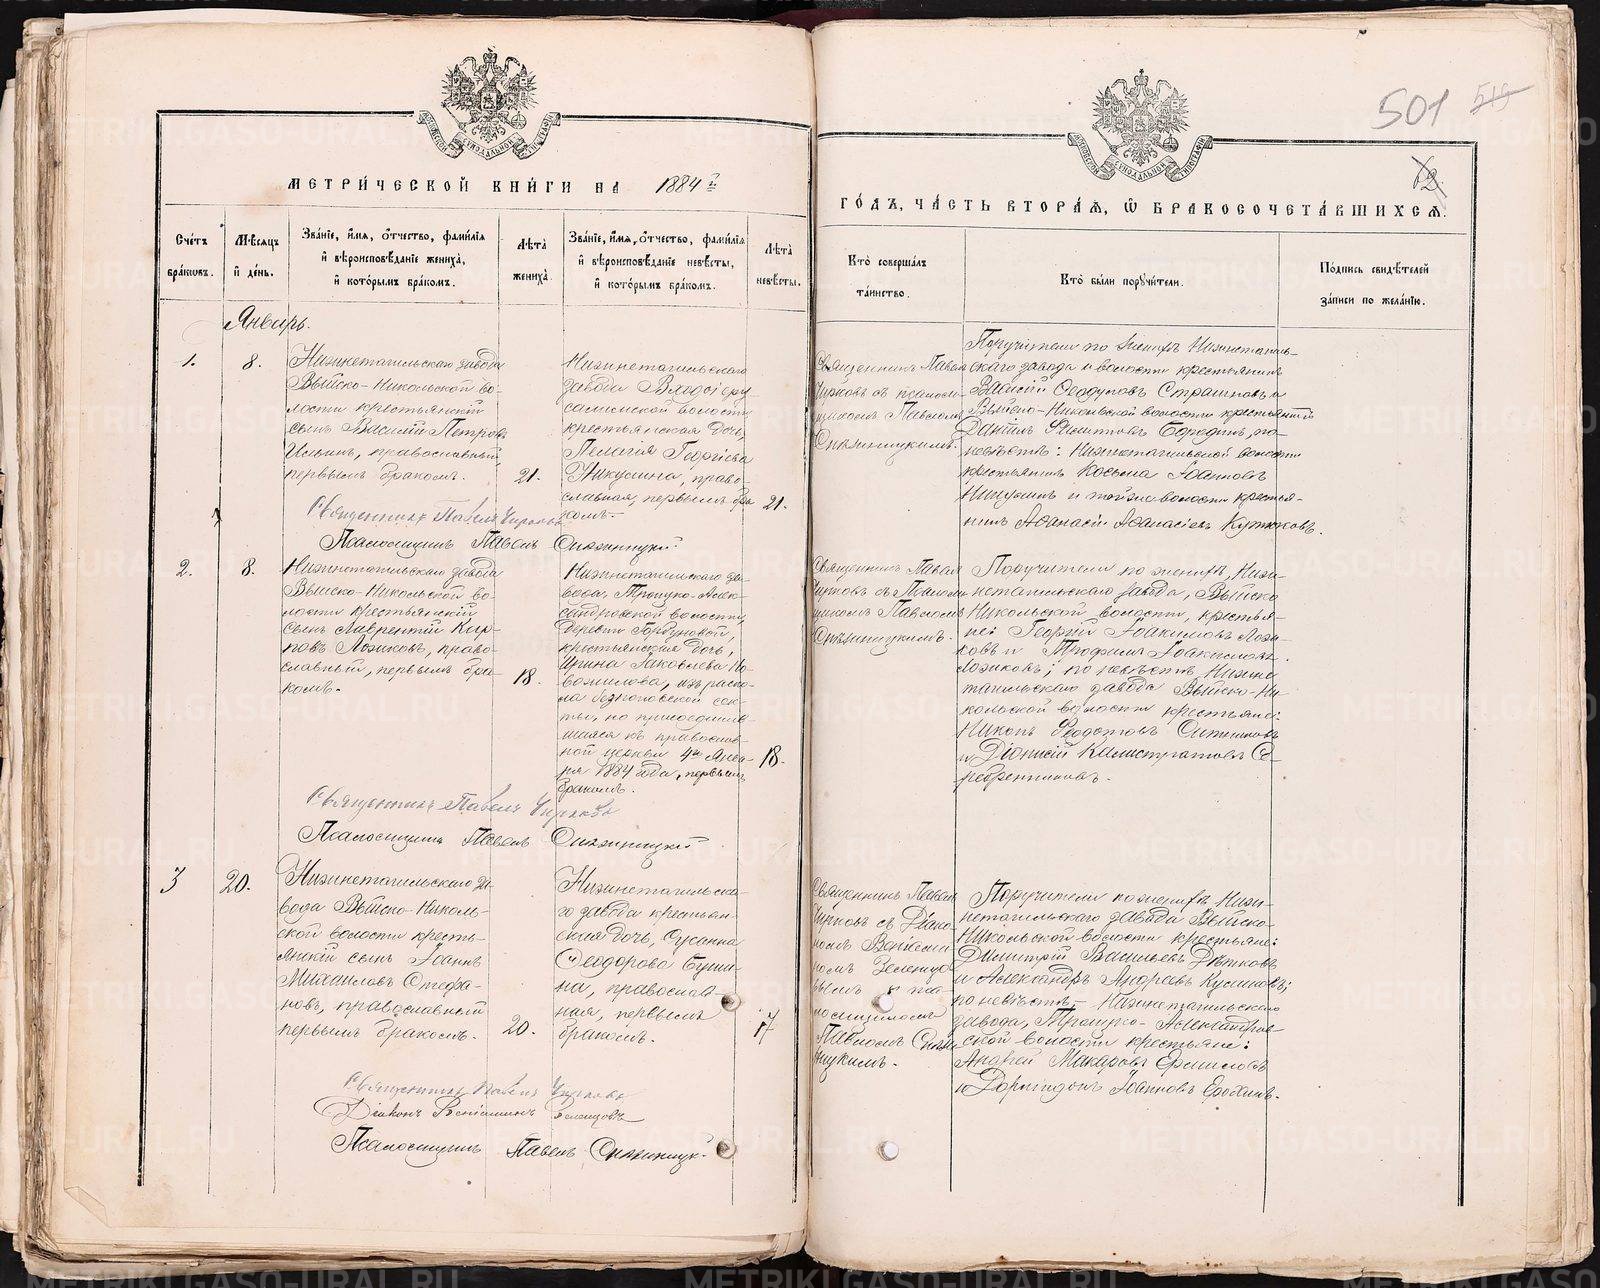 501 519
МОСКОВСКОЙ СѴНОДАЛЬНОЙ ТИПОГРАФІИ
МОСКОВСКОЙ СѴНОДАЛЬНОЙ ТИПОГРАФІИ
МЕТРИ́ЧЕСКОЙ КНИ́ГИ НА 1884 й
ГО́ДЪ, ЧА́СТЬ ВТОРА́Я, Ѽ БРАКОСОЧЕТА́ВШИХСЯ.
Сче́тъ бра́ковъ.
Мѣ́сяцъ и де́нь.
Зва́ніе, и́мя, о́тчество, фами́лія
и вѣроисповѣ́даніе жениха̀,
и кото́рымъ бра́комъ.
Лѣ́та жениха̀.
Зва́ніе, и́мя, о́тчество, фами́лія
и вѣроисповѣ́даніе невѣ́сты,
и кото́рымъ бра́комъ.
Лѣ́та невѣ́сты.
Кто̀ соверша́лъ
та́инство.
Кто̀ бы́ли поручи́тели.
По́дпись свидѣ́телей
за́писи по жела́нію.
Январь.
1.
8.
Нижнетагильскаго завода
Выйско-Никольской во-
лости крестьянскій
сынъ Василій Петровъ
Ильинъ, православный,
первымъ бракомъ.
21.
Нижнетагильскаго
завода
волости
крестьянская дочь,
Пелагія Георгіева
право-
славная, первымъ бра
комъ.
21.
Священникъ Павелъ
съ псалом-
щикомъ Павломъ
Поручители по женихѣ Нижнетагиль-
скаго завода и волости крестьянинъ
Василій Ѳедуловъ Страшновъ и
Выйско-Никольской волости крестьянинъ
Даніилъ Бородинъ, по
невѣстѣ: Нижнетагильской волости
крестьянинъ Косьма Іоанновъ
и тойже волости крестья-
нинъ Аѳанасій Аѳанасіевъ
Священникъ Павелъ
Псаломщикъ Павелъ
2.
8.
Нижнетагильскаго завода
Выйско-Никольской во-
лости крестьянскій
сынъ Лаврентій Кир-
право-
славный, первымъ бра-
комъ.
18.
Нижнетагильскаго за-
вода, Троицко-Алек-
сандровской волости,
деревни Горбуновой,
крестьянская дочь,
Ирина Іаковлева
изъ раско-
ла безпоповской сек-
ты, но присоединив
шаяся къ православ-
ной церкви 4го Янва-
ря 1884 года, первымъ
бракомъ.
18.
Священникъ Павелъ
съ Псалом
щикомъ Павломъ
Поручители по женихѣ, Ниж-
нетагильскаго завода, Выйско
Никольской волости, крестья-
не: Георгій Іоакимовъ
и Трофимъ Іоакимовъ
по невѣстѣ Нижне
тагильскаго завода Выйско-Ни-
кольской волости крестьяне:
Никонъ Ѳеодотовъ Ситниковъ
и Діонисій Калистратовъ Се-
ребренниковъ.
Священникъ Павелъ
Псаломщикъ Павелъ
3
20.
Нижнетагильскаго за-
вода Выйско-Николь-
ской волости кресть-
янскій сынъ Іоаннъ
Михаиловъ Стефа-
новъ, православный
первымъ бракомъ.
20.
Нижнетагильска-
го завода крестьян-
ская дочь, Сусанна
Ѳеодорова
на, православ-
ная, первымъ
бракомъ.
17
Священникъ Павелъ
съ Діако-
номъ Веніами-
номъ Зеленцо
вымъ и пса-
ломщикомъ
Павломъ
Поручители по женихѣ Ниж-
нетагильскаго завода Выйско-
Никольской волости крестьяне:
Димитрій Васильевъ
и Александръ Андреевъ
по невѣстѣ, Нижнетагильскаго
завода, Троицко-Александров-
ской волости крестьяне:
Андрей Макаровъ Ермиловъ
и Доримедонъ Іоанновъ Ерохинъ.
Священникъ Павелъ
Діаконъ Веніаминъ Зеленцовъ
Псаломщикъ Павелъ
METRIKI.GASO-URAL.RU